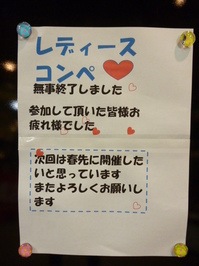 レディース
コンペ
無事終了しました
参加して頂いた皆様お
疲れ様でした
次回は春先に開催した
いと思っています
またよろしくお願いし
ます